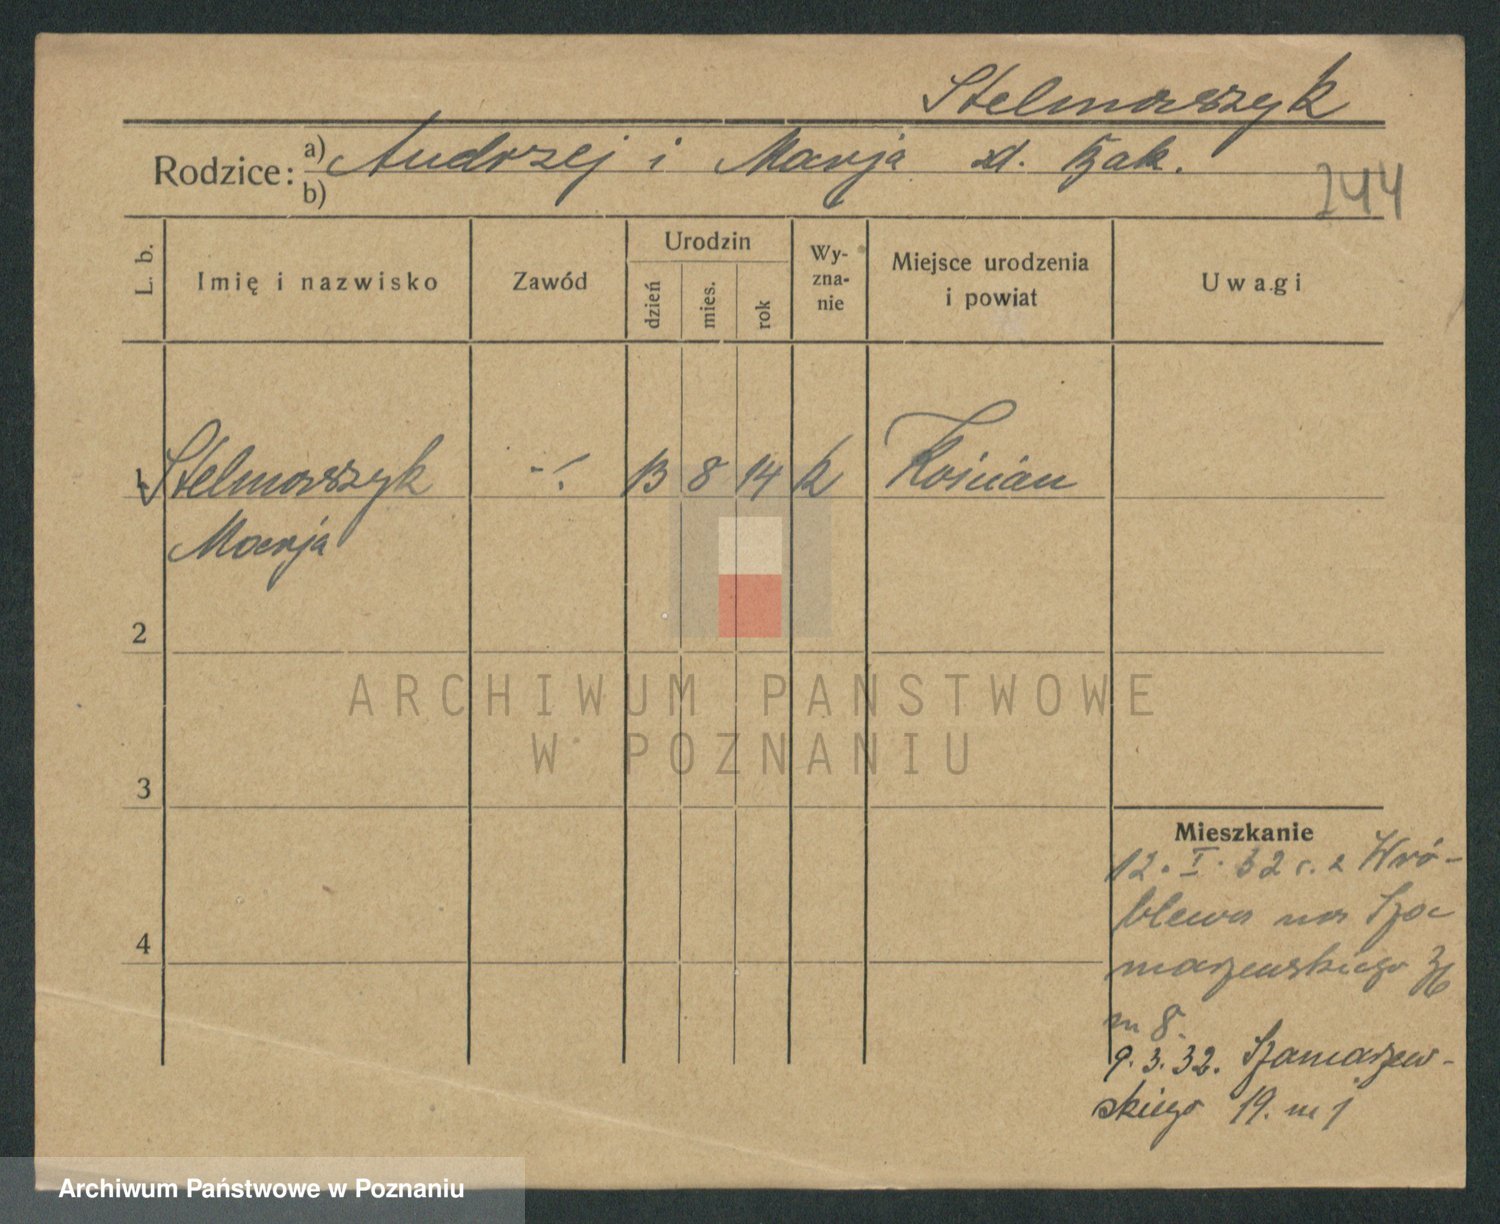 Stelmaszyk
Rodzice: a) Andrzej i Marja zd. Bąk.
b)
244
L. b.
Imię i nazwisko
Zawód
Urodzin
dzień
mies.
rok
Wy-
zna-
nie
Miejsce urodzenia
i powiat
Uwagi
1 Stelmaszyk -.- 13 8 14 k Kościan
Marja
2
ARCHIWUM PAŃSTWOWE
W POZNANIU
3
Mieszkanie
12. I. 32 r. z Wró-
blewa na Sza
marzewskiego
4
m 8.
9. 3. 32. Szamarzew-
skiego 19. m 1
Archiwum Państwowe w Poznaniu